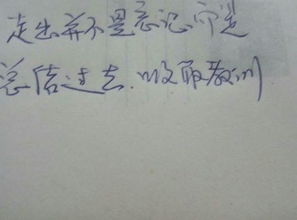 走出并不是忘记,而是
总结过去.吸取教训